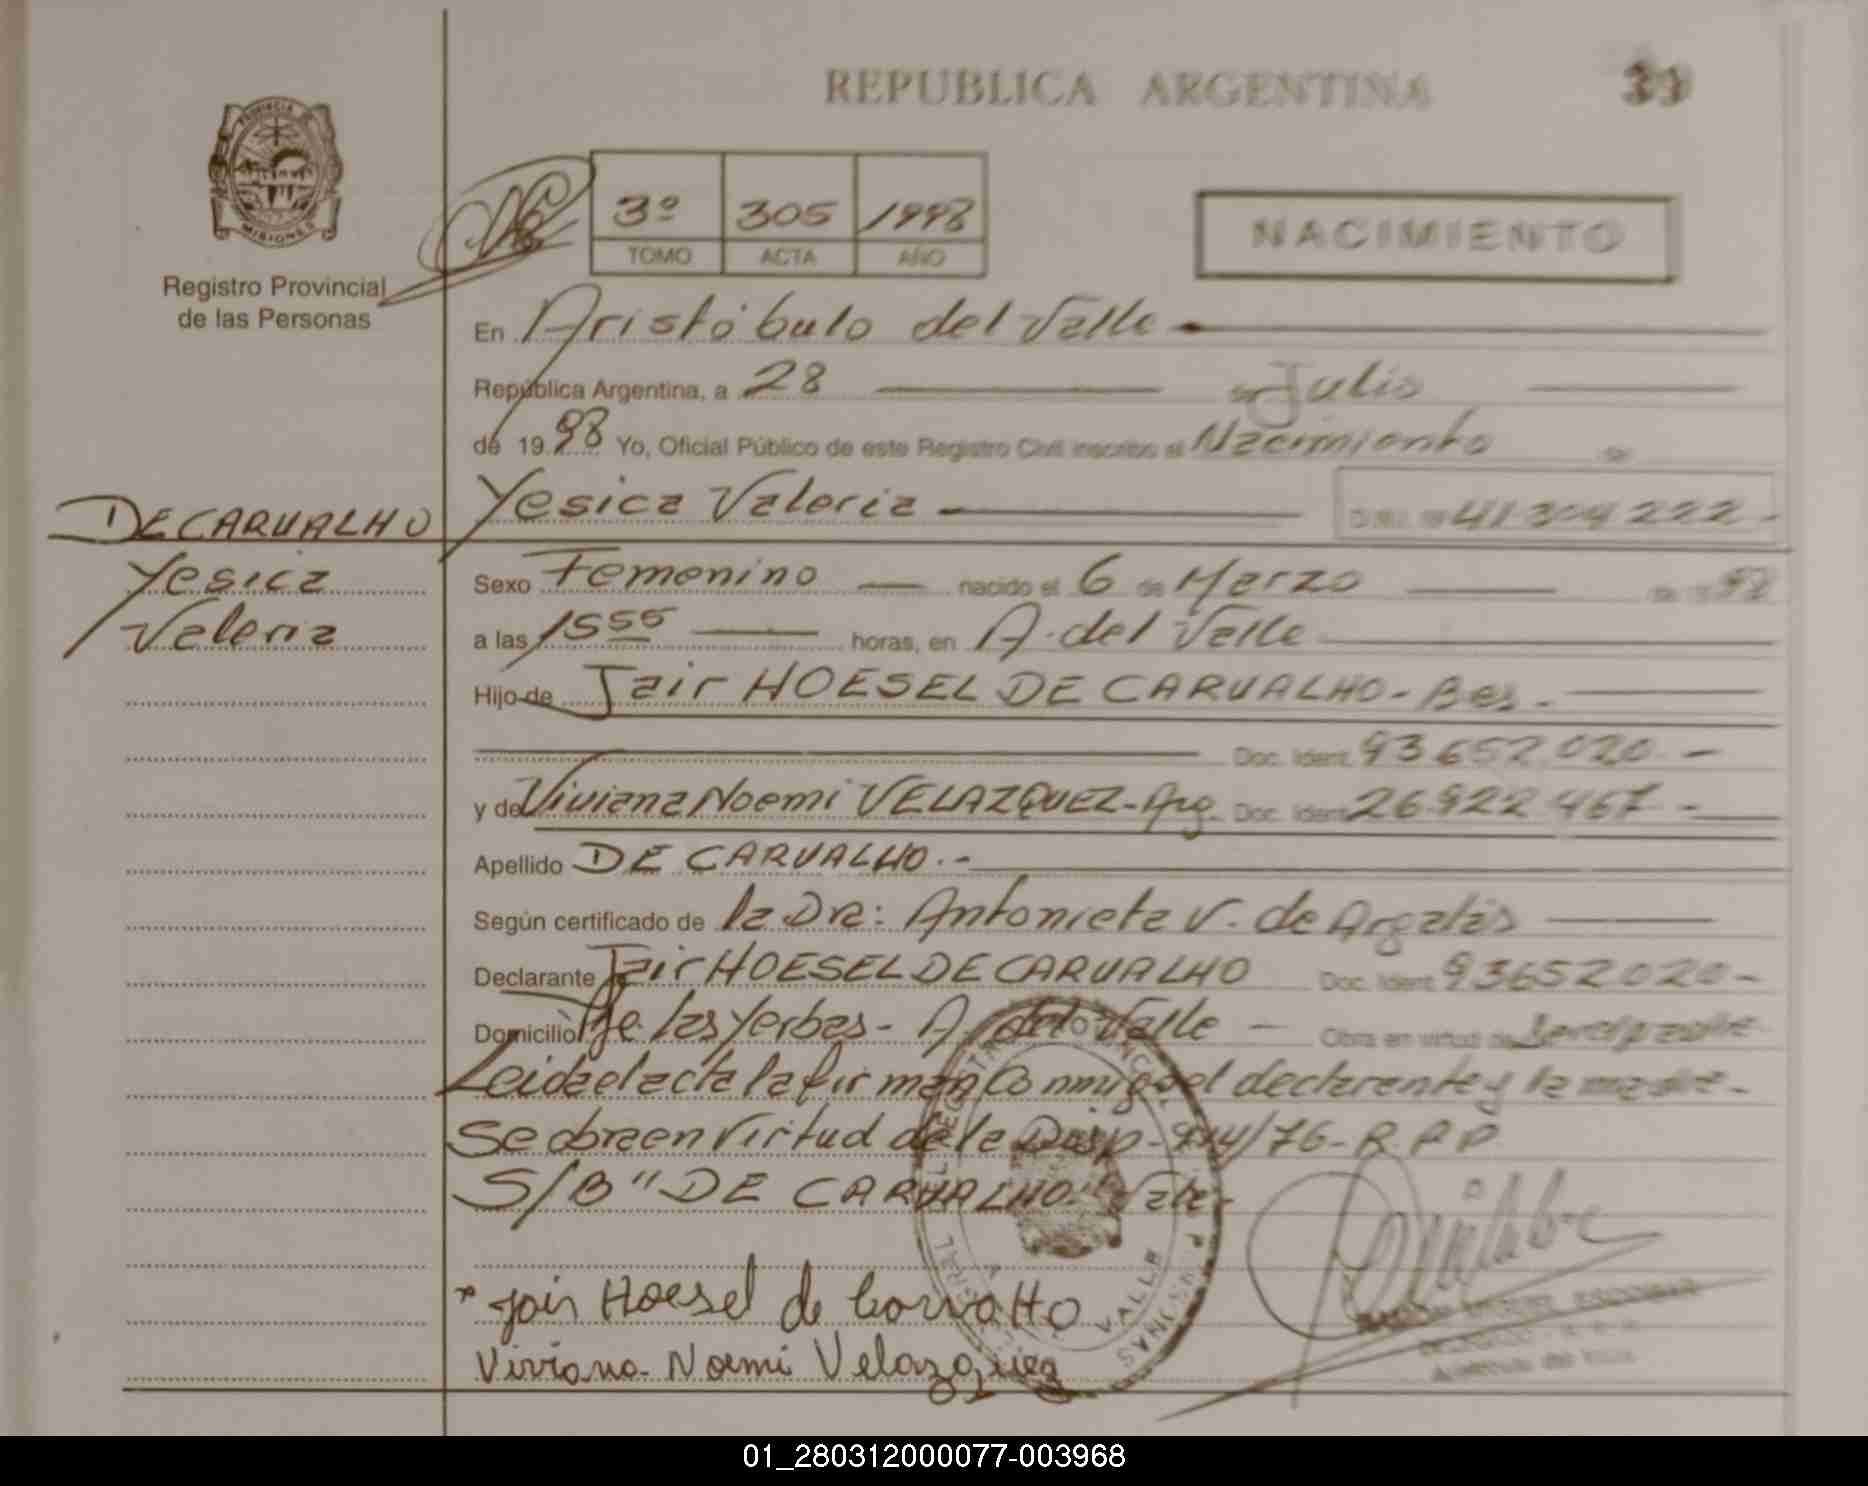 REPUBLICA ARGENTINA
39
PROVINCIA DE MISIONES
Registro Provincial
de las Personas
3º 305 1998
TOMO ACTA AÑO
NACIMIENTO
En Aristóbulo del Valle
República Argentina, a 28 de Julio
de 1998 Yo, Oficial Público de este Registro Civil inscribo el Nacimiento de
Yesica Valeria D.N.I. Nº 41 304 222 -
DE CARVALHO
Yesica
Valeria
Sexo Femenino nacido el 6 de Marzo de 19
a las 15 55 horas, en A. del Valle
Hijo de Jair HOESEL DE CARVALHO -
Doc. Ident. 93 652 020 -
y de Viviana Noemi VELAZQUEZ - Arg. Doc. Ident. 26 922 467 -
Apellido DE CARVALHO. -
Según certificado de la Dra: Antonieta V. de
Declarante Jair HOESEL DE CARVALHO Doc. Ident. 93652020 -
Domicilio las Yerbas - A. del Valle - Obra en virtud de
Leida el acta la firman Conmigo el declarante y la madre -
Se obra en Virtud de la Disp - /76 - R P P
S/B " DE CARVALHO " Vale -
Jair Hoesel de Carvalho
Viviana Noemi Velazquez
VALLE
01_280312000077-003968